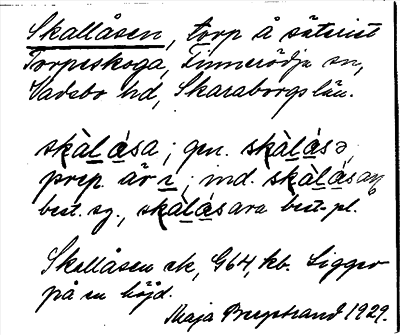 Skallåsen, torp å säteriet
Torpaskoga, Finnerödja sn,
Vadsbo hd, Skaraborgs län.
skàlása; gen. skàlásə,
prep. är ı; ind. skàlásaŋ
best. sg., skàlásara best. pl.
Skallåsen ek, G64, kb. Ligger
på en höjd.
Maja Bergstrand 1929.